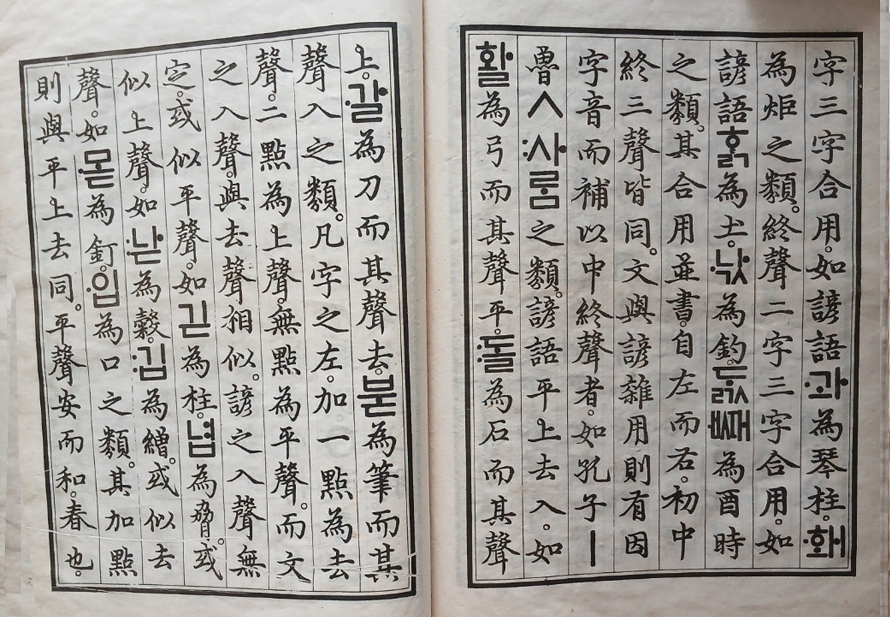 字三字合用。如諺語·과為琴柱。·홰
為炬之類。終聲二字三字合用。如
諺語ᄒᆞᆰ為土。·낛為釣。ᄃᆞᇌᄣᅢ為酉時
之類。其合用並書。自左而右。初中
終三聲皆同。文與諺雜用則有因
字音而補以中終聲者。如孔子ㅣ
魯ㅅ:사ᄅᆞᆷ之類。諺語平上去入。如
활為弓而其聲平。:돌為石而其聲
上。·갈為刀而其聲去。붇為筆而其
聲入之類。凡字之左。加一點為去
聲。二點為上聲。無點為平聲。而文
之入聲。與去聲相似。諺之入聲無
定。或似平聲。如긷為柱。녑為脅。或
似上聲。如:낟為穀。:깁為繒。或似去
聲。如·몯為釘。·입為口之類。其加點
則與平上去同。平聲安而和。春也。